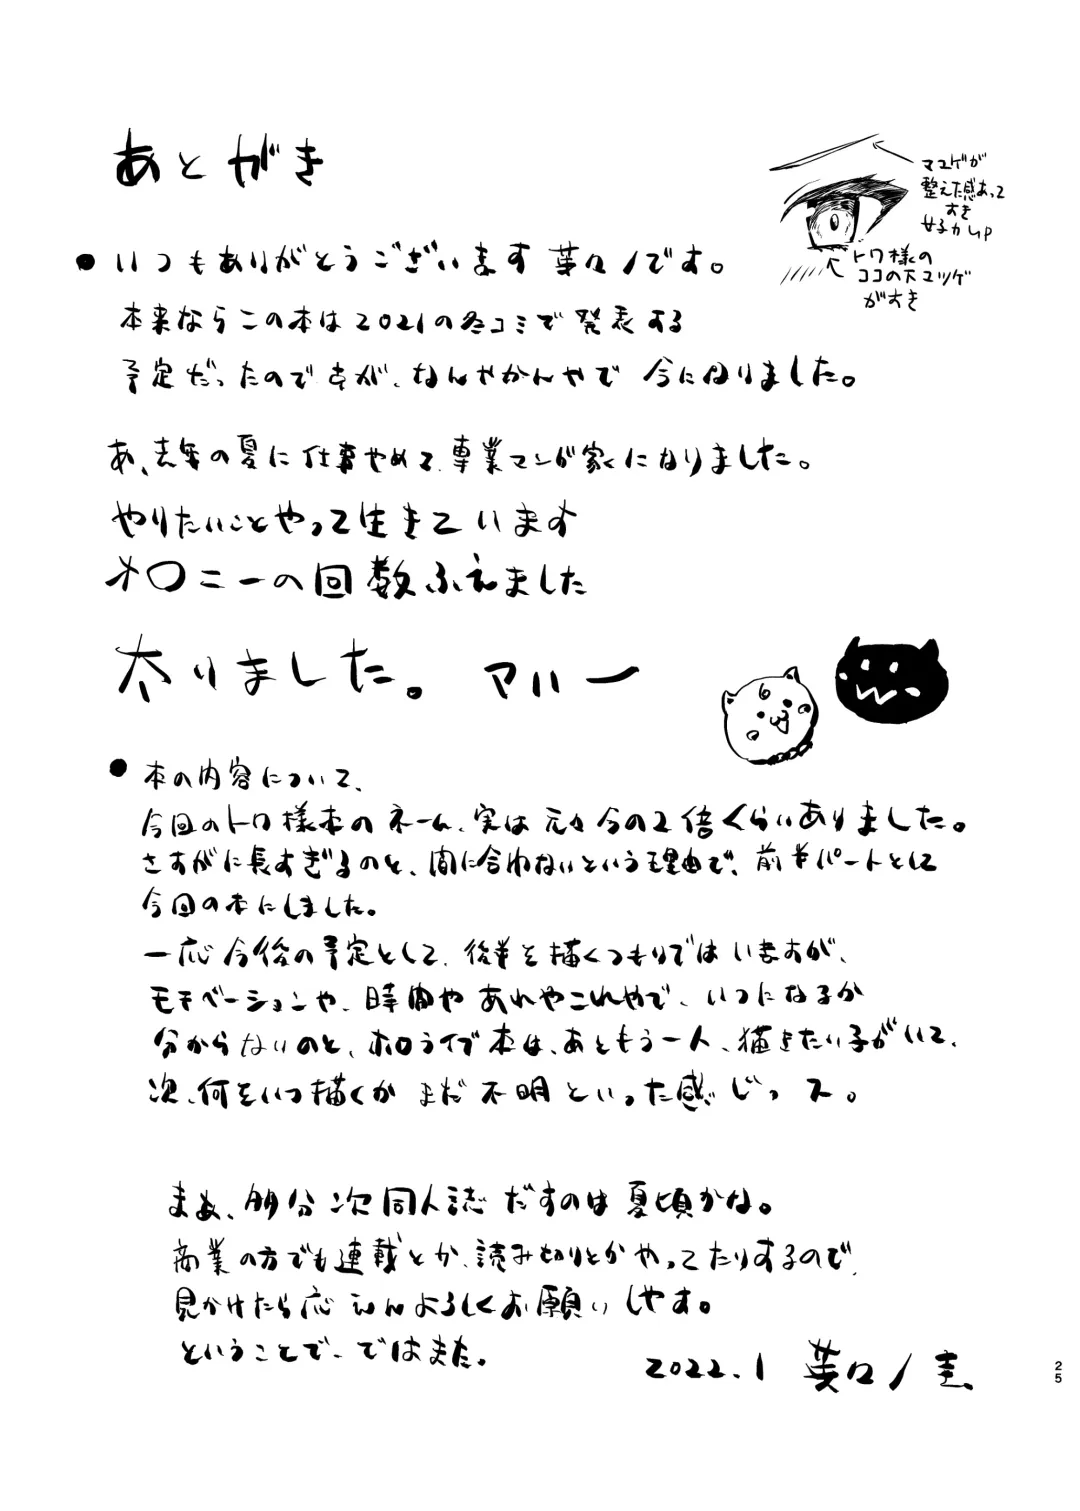 あとがき
マユゲが
整えた感あって
すき
女子力UP
トワ様の
ココの下マツゲ
がすき
● いつもありがとうございます 葉々ノです。
本来ならこの本は2021の冬コミで発表する
予定だったのですが、なんやかんやで 今に回りました。
あ、去年の夏に仕事やめて、専業マンガ家になりました。
やりたいことやって生きています
オロニーの回数ふえました
太りました。 マハー
● 本の内容について、
今回のトワ様本のネーム、実は元々今の2倍くらいありました。
さすがに長すぎるのと、間に合わないという理由で、前半パートとして
今回の本にしました。
一応今後の予定として、後半を描くつもりではいますが、
モチベーションや、時間やあれやこれやで、いつになるか
分からないのと、ホロライブ本は、あともう一人、描きたい子がいて、
次、何をいつ描くか まだ不明といった感じっス。
まぁ、多分次同人誌だすのは夏頃かな。
商業の方でも連載とか、読み切りとかやってたりするので、
見かけたら応えんよろしくお願いしやす。
ということで、ではまた。
2022.1
25